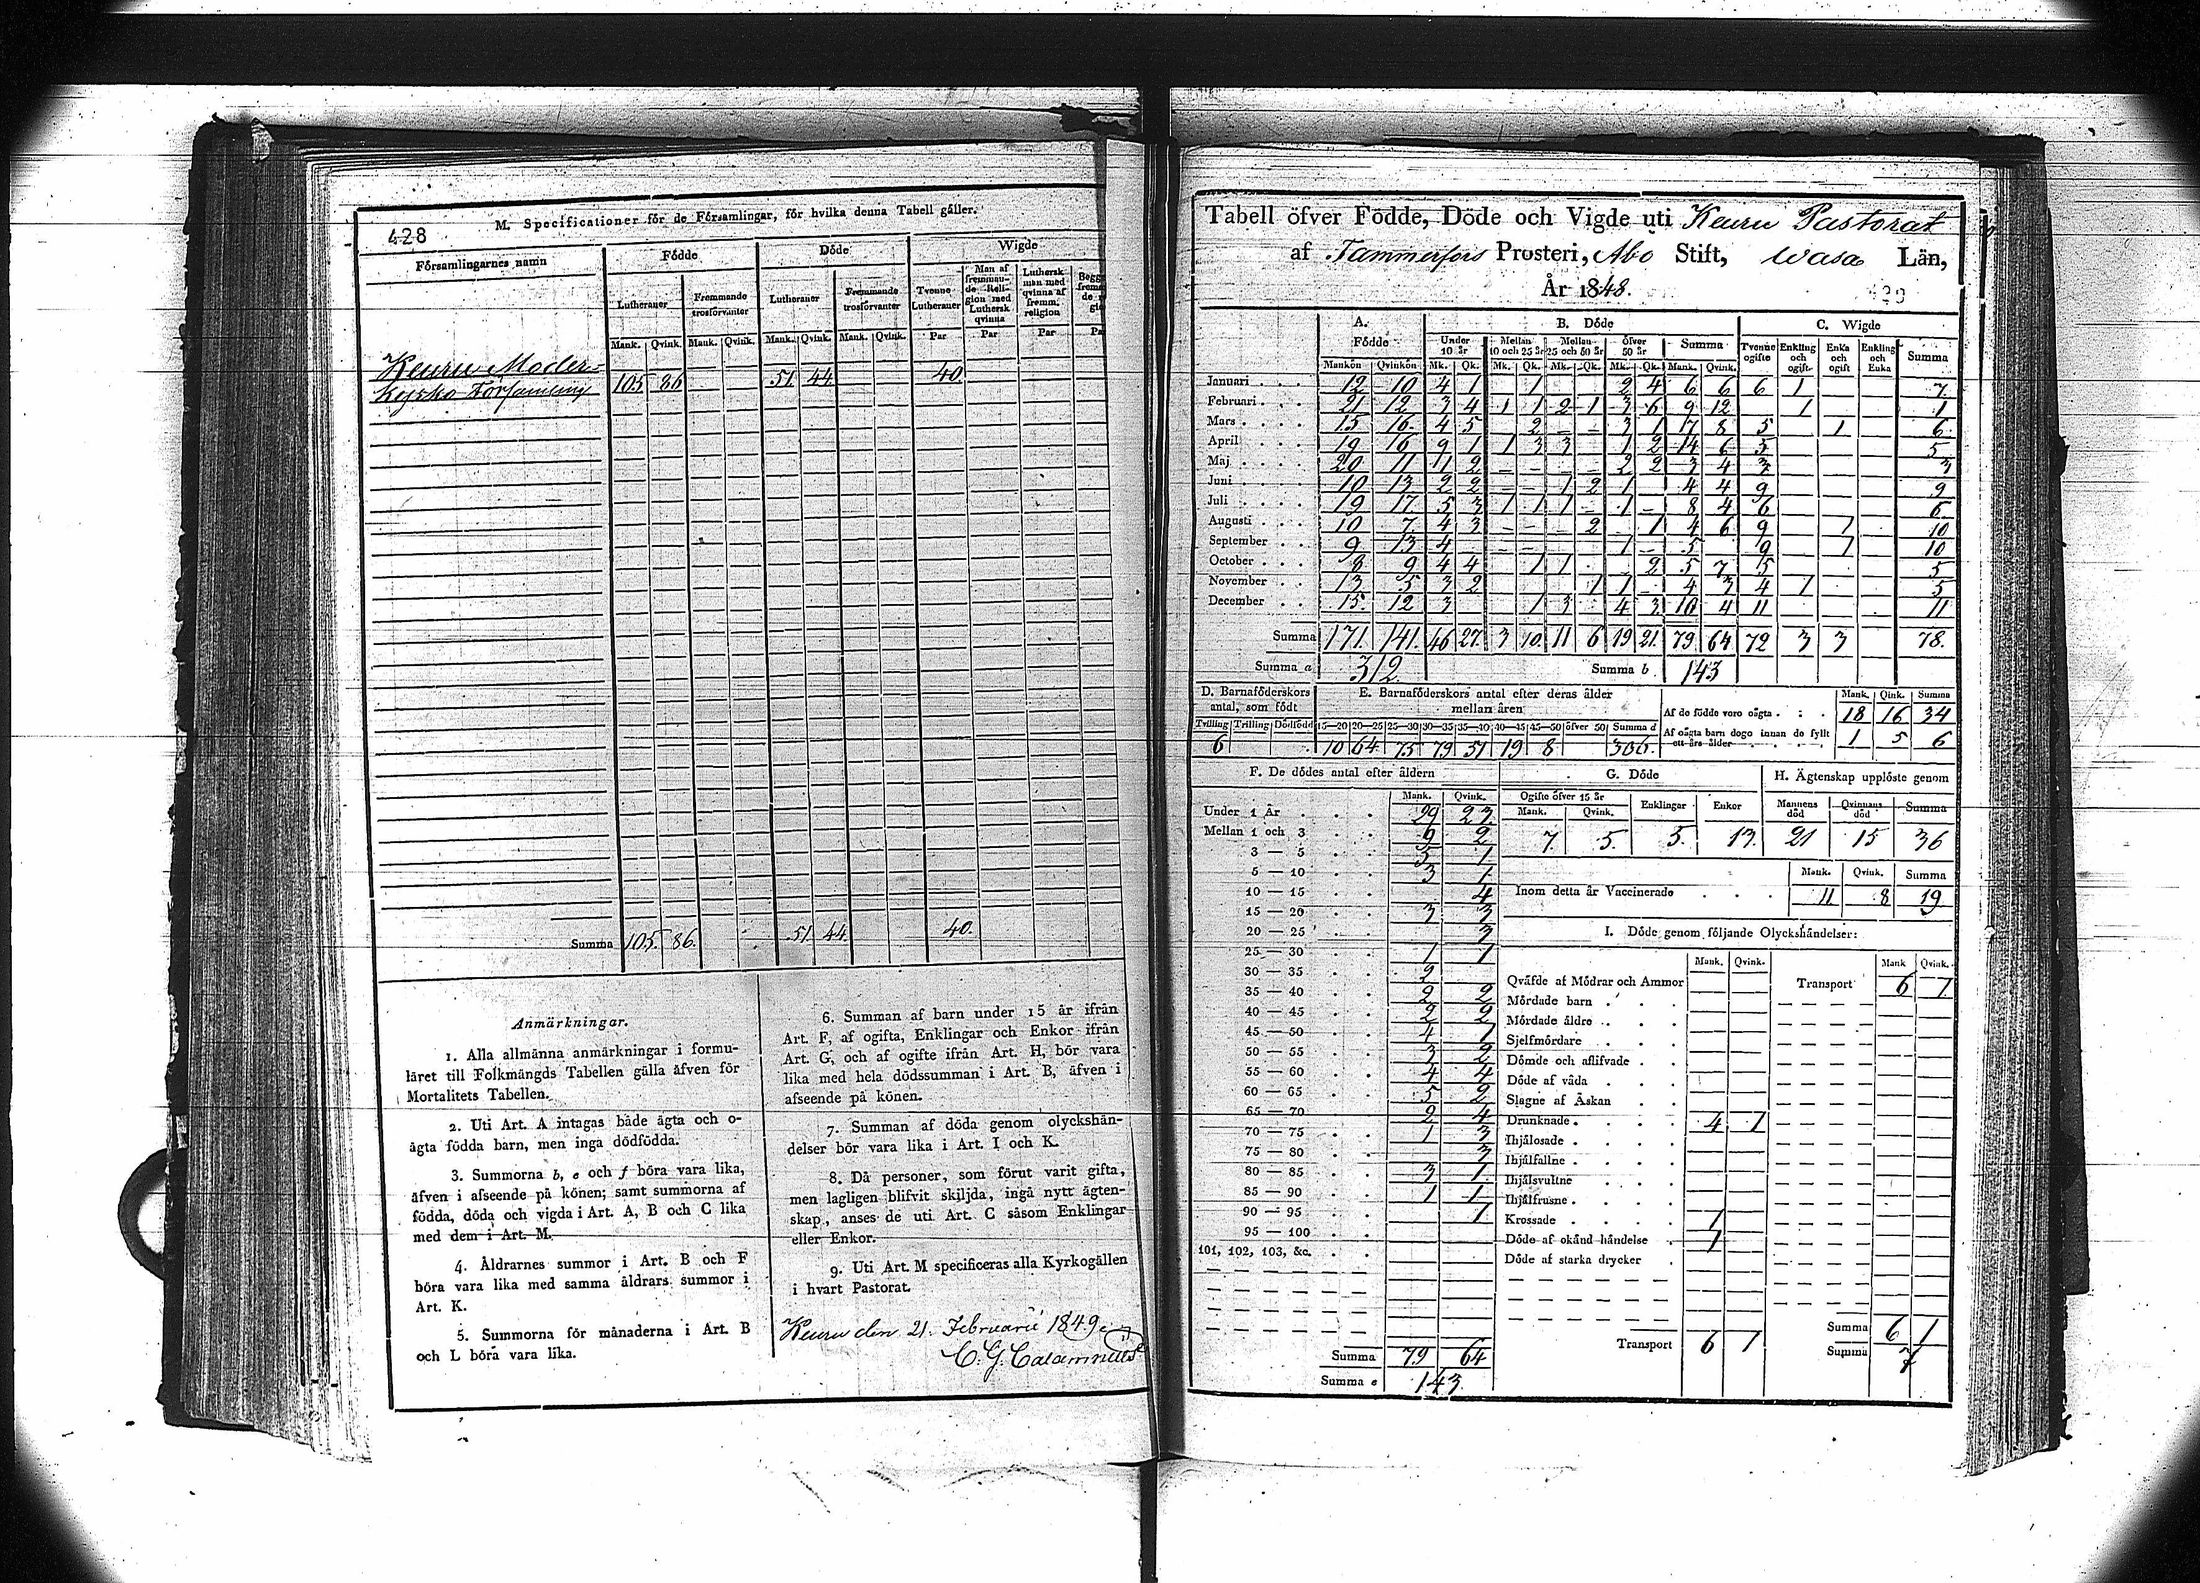 428
M. Specificationer för de Församlingar, för hvilka denna Tabell gäller.
Församlingarnes namn Födde Döde Wigde
Lutheraner Fremmande trosförvanter Lutheraner Fremmande trosförvanter Tvenne Lutheraner Man af fremmande Religion med Luthersk qvinna Luthersk man med qvinna af fremm. religion
Mank. Qvink. Mank. Qvink. Mank. Qvink. Mank. Qvink. Par Par Par
Keuru Moder-
kyrko Församling 105 86 51 44 40
Summa 105. 86. 51 44 40.
Anmärkningar.
1. Alla allmänna anmärkningar i formu-
läret till Folkmängds Tabellen gälla äfven för
Mortalitets Tabellen.
2. Uti Art. A intagas både ägta och o-
ägta födda barn, men inga dödfödda.
3. Summorna b, e och f böra vara lika,
äfven i afseende på könen; samt summorna af
födda, döda och vigda i Art. A, B och C lika
med dem i Art. M.
4. Åldrarnes summor i Art. B och F
böra vara lika med samma åldrars summor i
Art. K.
5. Summorna för månaderna i Art. B
och L böra vara lika.
6. Summan af barn under 15 år ifrån
Art. F, af ogifta, Enklingar och Enkor ifrån
Art. G, och af ogifte ifrån Art. H, bör vara
lika med hela dödssumman i Art. B, äfven i
afseende på könen.
7. Summan af döda genom olyckshän-
delser bör vara lika i Art. I och K.
8. Då personer, som förut varit gifta,
men lagligen blifvit skiljda, ingå nytt ägten-
skap, anses de uti Art. C såsom Enklingar
eller Enkor.
9. Uti Art. M specificeras alla Kyrkogällen
i hvart Pastorat.
Keuru den 21. Februarii 1849
C. G. Calamnius
Tabell öfver Födde, Döde och Vigde uti Keuru Pastorat
af Tammerfors Prosteri, Åbo Stift, Wasa Län,
År 1848.
A. Födde B. Döde C. Wigde
Under 10 år Mellan 10 och 25 år Mellan 25 och 50 år Öfver 50 år Summa Tvenne ogifte Enkling och ogift Enka och ogift Enkling och Enka Summa
Mankön Qvinkön Mk. Qk. Mk. Qk. Mk. Qk. Mk. Qk. Mank. Qvink.
Januari 12 10 4 1 1 2 4 6 6 6 1 7
Februari 21 12 3 4 1 1 2 1 3 6 9 12 1 1
Mars 15 16 4 5 2 3 1 8 5 1 6
April 19 16 9 1 1 3 3 1 2 14 6 5 5
Maj 20 11 1 2 2 2 3 4 3 3
Juni 10 13 2 2 1 2 1 4 4 9 9
Juli 19 17 5 3 1 1 1 1 8 4 6 6
Augusti 10 7 4 3 2 1 4 6 9 1 10
September 9 13 4 1 5 9 1 10
October 8 9 4 4 1 1 2 5 7 5 5
November 13 5 3 2 1 1 4 3 4 1 5
December 15 12 3 1 3 4 3 10 4 11 11
Summa 171. 141. 46 27. 3 10. 11 6 19 21. 79 64 72 3 3 78.
Summa a 312. Summa b 143
D. Barnaföderskors antal, som födt
Tvilling Trilling Dödfödd
6
E. Barnaföderskors antal efter deras ålder mellan åren
15—20 20—25 25—30 30—35 35—40 40—45 45—50 öfver 50 Summa d
10 64 75 79 51 19 8 306.
Mank. Qink. Summa
Af de födde voro oägta 18 16 34
Af oägta barn dogo innan de fyllt ett års ålder 1 5 6
F. De dödes antal efter åldern
Mank. Qvink.
Under 1 År 29 23
Mellan 1 och 3 9 2
3 — 5 5 1
5 — 10 3 1
10 — 15 4
15 — 20 3 3
20 — 25 3
25 — 30 1 1
30 — 35 2
35 — 40 2 2
40 — 45 2 2
45 — 50 4 1
50 — 55 3 2
55 — 60 4 4
60 — 65 5 2
65 — 70 2 4
70 — 75 1 3
75 — 80 3
80 — 85 3 1
85 — 90 1 1
90 — 95 1
95 — 100
101, 102, 103, &c.
Summa 79 64
Summa e 143.
G. Döde
Ogifte öfver 15 år Enklingar Enkor
Mank. Qvink.
7 5. 5. 13.
H. Ägtenskap upplöste genom
Mannens död Qvinnans död Summa
21 15 36
Mank. Qvink. Summa
Inom detta år Vaccinerade 11 8 19
I. Döde genom följande Olyckshändelser:
Mank. Qvink. Mank Qvink.
Qväfde af Mödrar och Ammor Transport 6 1
Mördade barn
Mördade äldre
Sjelfmördare
Dömde och aflifvade
Döde af våda
Slagne af Åskan
Drunknade 4 1
Ihjälosade
Ihjälfallne
Ihjälsvultne
Ihjälfrusne
Krossade 1
Döde af okänd händelse 1
Döde af starka drycker
Transport 6 1
Summa 6 1
Summa 7